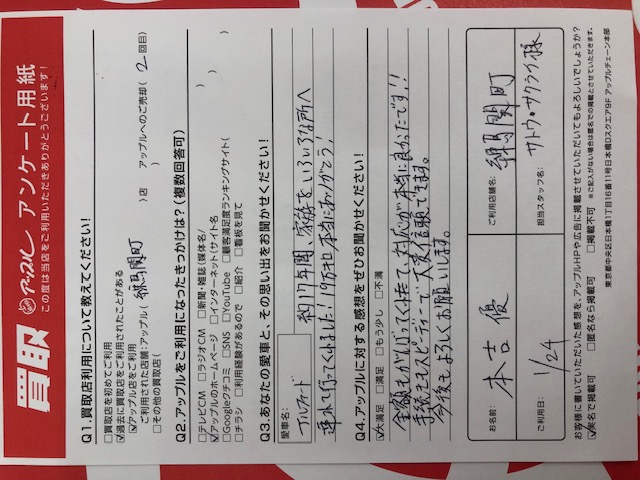 買取 アップル アンケート用紙
この度は当店をご利用いただきありがとうございます!
Q1.買取店利用について教えてください!
□買取を初めてご利用
☑過去に買取店をご利用されたことがある
☑アップル店をご利用
ご利用された店舗:アップル( 練馬関町 )店 アップルへのご売却( 2 回目)
□その他の買取店( )
Q2.アップルをご利用になったきっかけは?(複数回答可)
□テレビCM □ラジオCM □新聞・雑誌(媒体名/ )
☑アップルのホームページ □インターネット(サイト名 )
□Googleクチコミ □SNS □YouTube □顧客満足度ランキングサイト( )
□チラシ □利用経験があるので □紹介 □看板を見て
Q3.あなたの愛車と、その思い出をお聞かせください!
愛車名: アルファード
約17年間、家族をいろいろな所へ
連れて行ってくれました!19万キロ本当にありがとう!
Q4.アップルに対する感想をぜひお聞かせください!
☑大満足 □満足 □もう少し □不満
金額もがんばってくれて、対応が本当に良かったです!!
手続きもスピーディーで大変信頼できます。
今後もよろしくお願いします。
お名前: 本吉 優
ご利用日: 1/24
ご利用店舗名: 練馬関町
担当スタッフ名: サトウ・サクライ様
お客様に書いていただいた感想を、アップルHPや広告に掲載させていただいてもよろしいでしょうか?
☑実名で掲載可 □匿名なら掲載可 □掲載不可 ※ご記入がない場合は匿名での掲載とさせていただきます。
東京都中央区日本橋1丁目16番11号日本橋Dスクエア9F アップルチェーン本部